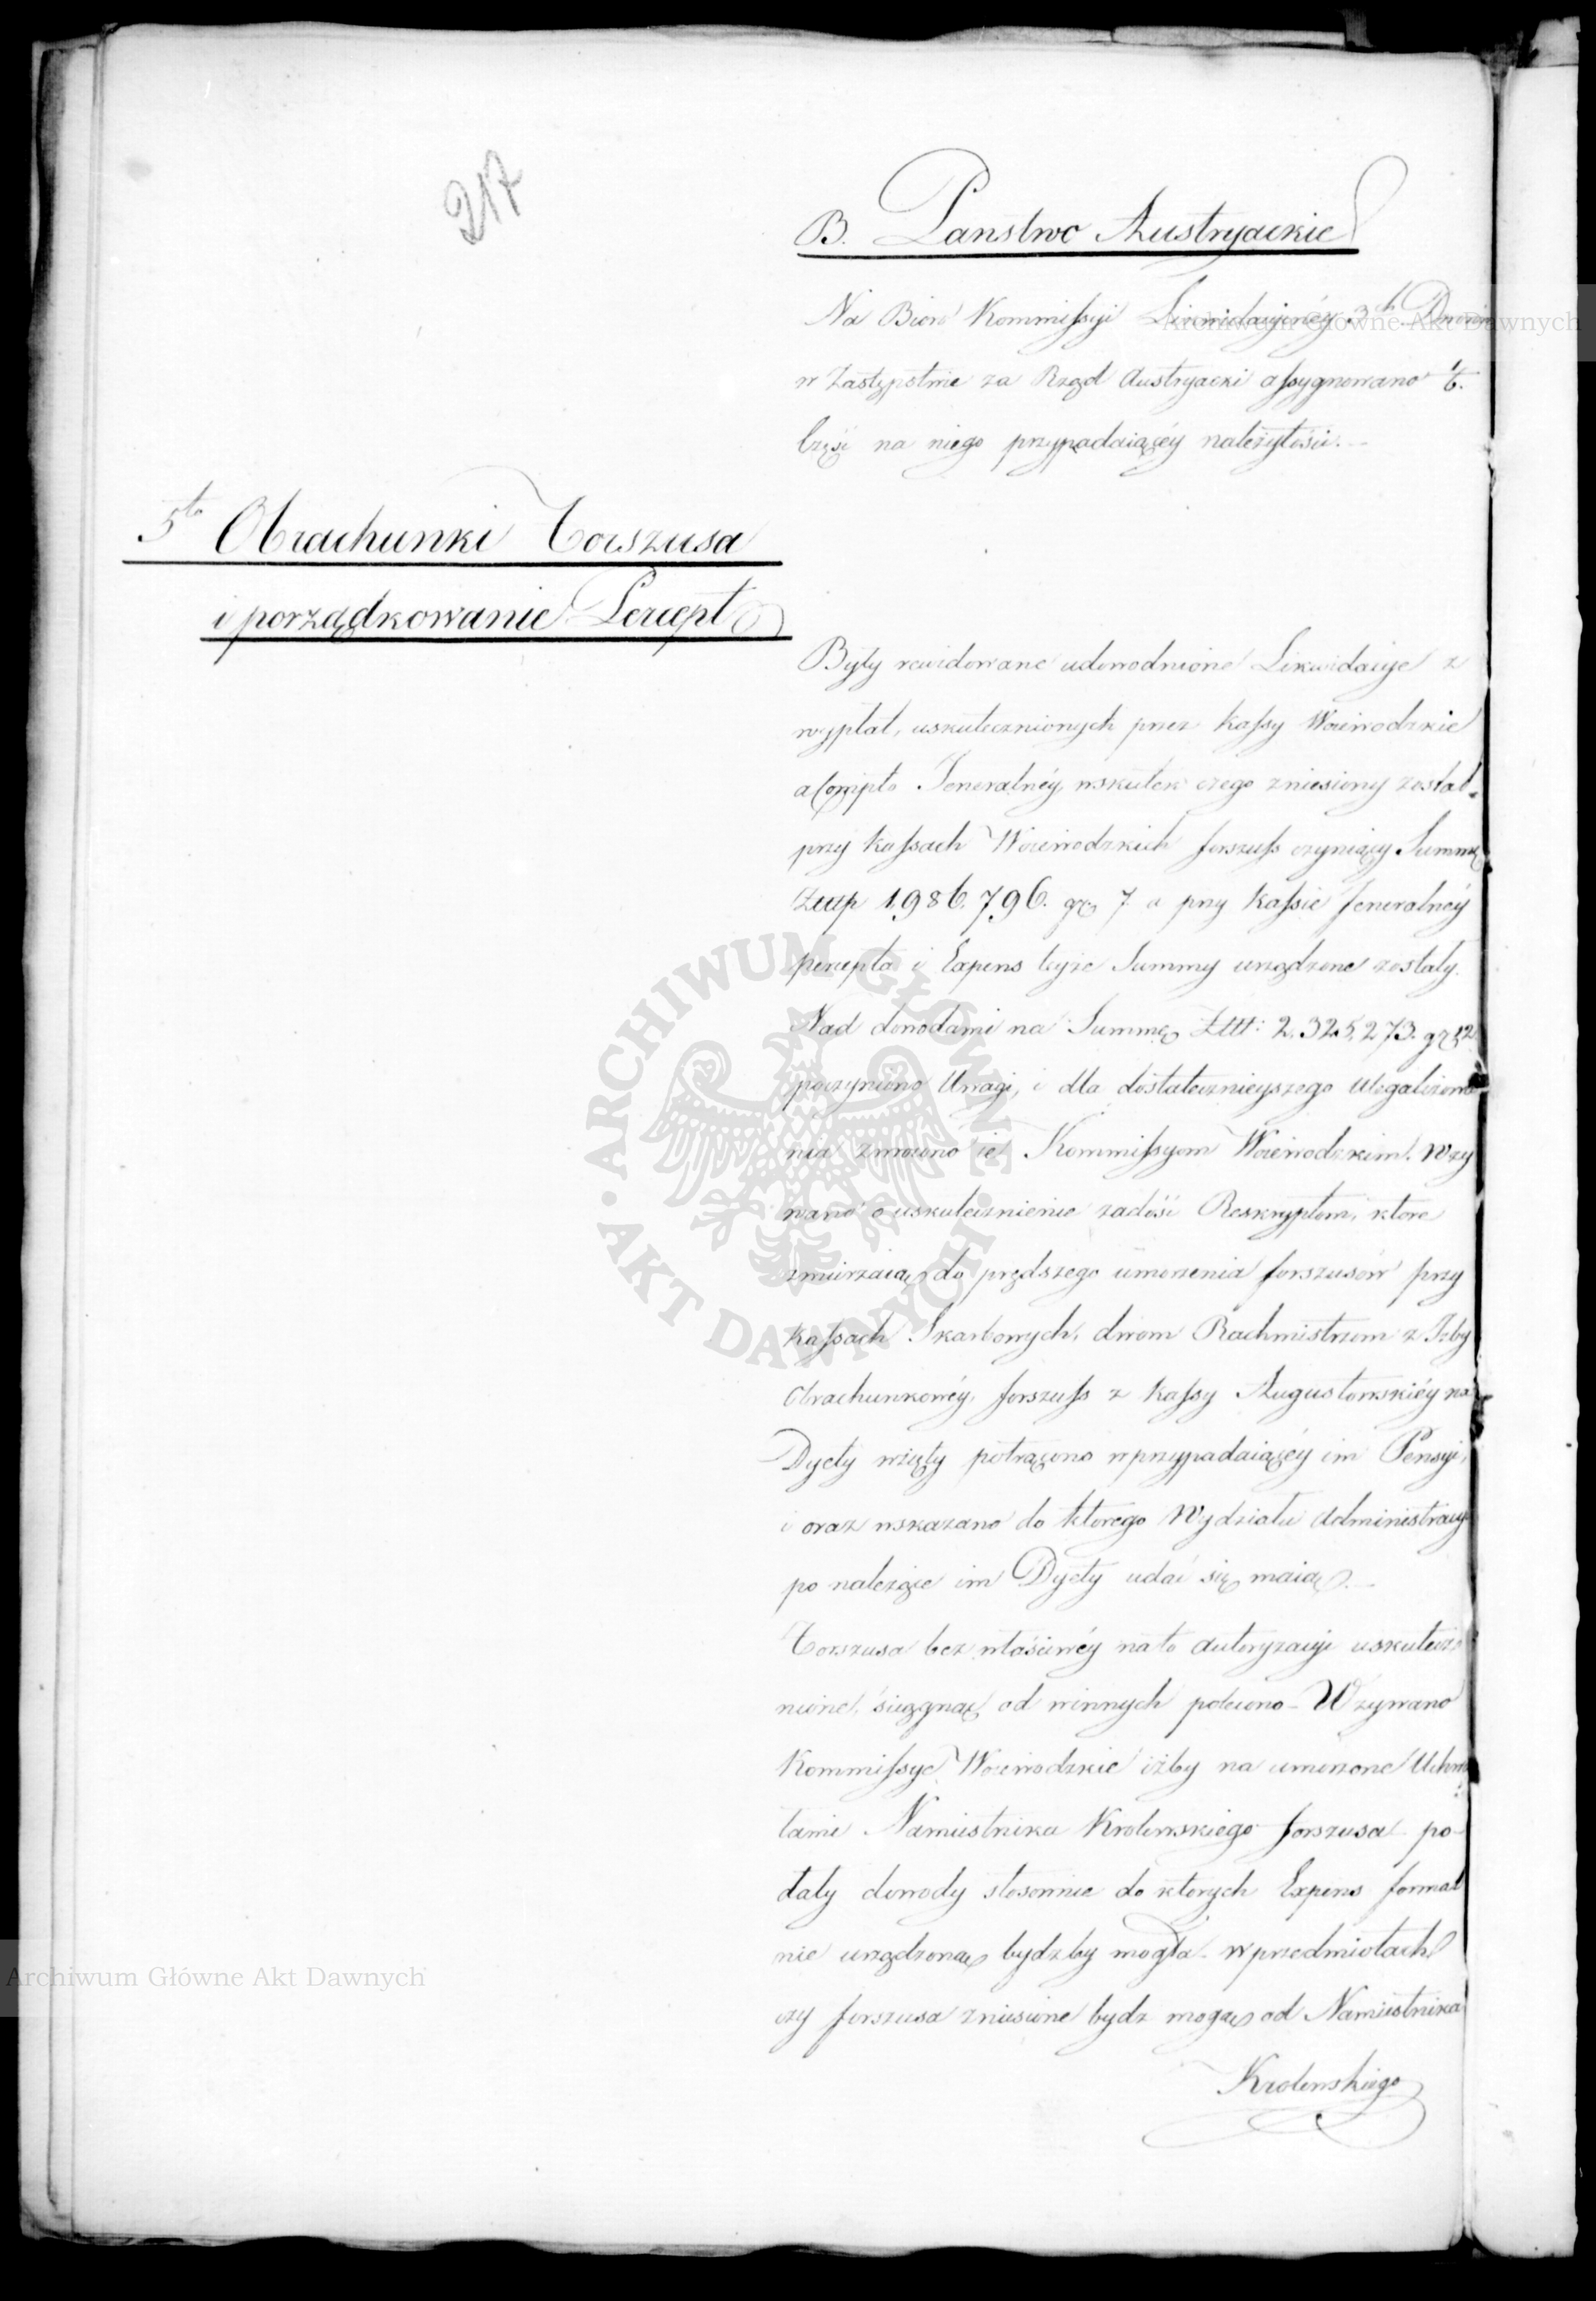 217
B. Panstwo Austryackie
Na Biuro Kommissyi Likwidacyinéy 3ch Dworów
w Zastępstwie za Rząd Austryacki assygnowano 1/6.
Część na niego przypadaiącéy należytości.—
5to Obrachunki Forszusa
i porządkowanie Percept
Były rewidowane udowodnione Likwidacye z
wypłat, uskutecznionych przez Kassy Woiewodzkie
a Conto Jeneralnéy, wskutek czego zniesiony został
przy Kassach Woiewodzkich forszuss czyniący Summę
Złtp 1,986,796. gr. 7. a przy Kassie Jeneralnéy
percepta i Expens teyże Summy urządzone zostały.
Nad dowodami na Summę Złtt: 2,325,273. gr 12
poczyniono Uwagi, i dla dostatecznieyszego Ulegalizowa
nia zwrócono ie Kommissyom Woiewodzkim. Wzy
wano o uskutecznienie zadość Reskryptom, które
zmierzaią do prędszego umorzenia forszusów przy
Kassach Skarbowych, dwom Rachmistrzom z Izby
Obrachunkowéy, forszuss z Kassy Augustowskiéy na
Dyety wzięty potrącono w przypadaiącéy im Pensyi,
i oraz wskazano do którego Wydziału Administracyi
po należące im Dyety udać się maią.—
Forszusa bez właściwéy na to autoryzacyi uskutecz
nione, ściągnąć od winnych polecono — Wzywano
Kommissye Woiewodzkie iżby na umorzone Uchwa
łami Namiestnika Krolewskiego forszusa po-
dały dowody stosownie do których Expens formal
nie urządzoną bydźby mogła. w przedmiotach
czy forszusa zniesione bydz mogą od Namiestnika
Krolewskiego
Archiwum Główne Akt Dawnych
Archiwum Główne Akt Dawnych
ARCHIWUM GŁÓWNE
AKT DAWNYCH